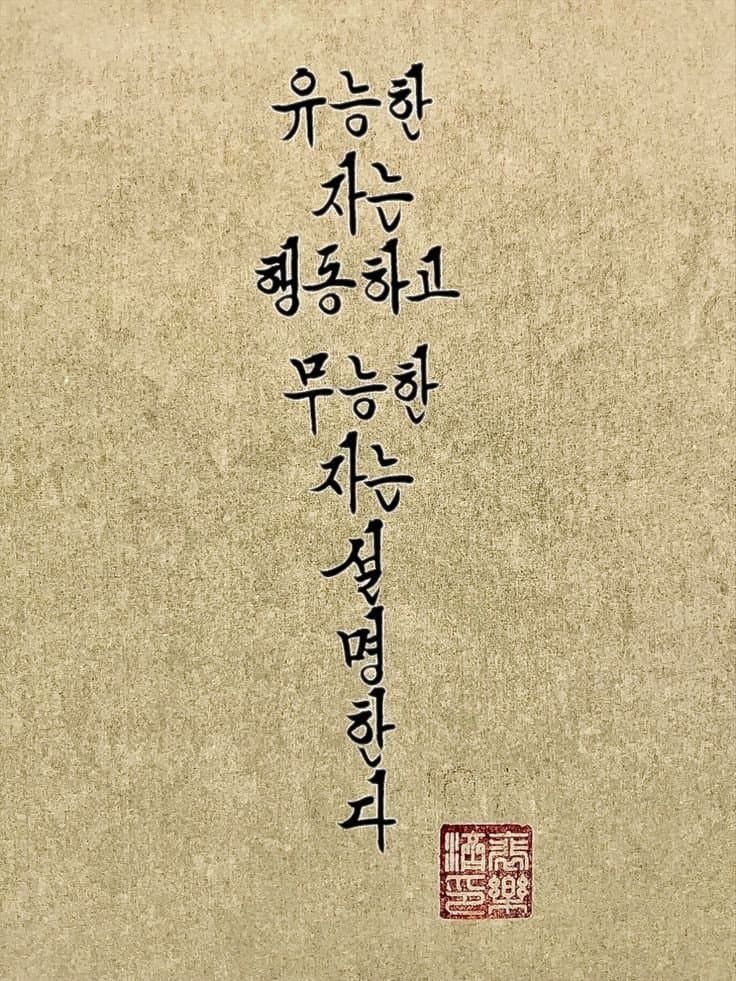 유능한
자는
행동하고
무능한
자는
설
명
한
다